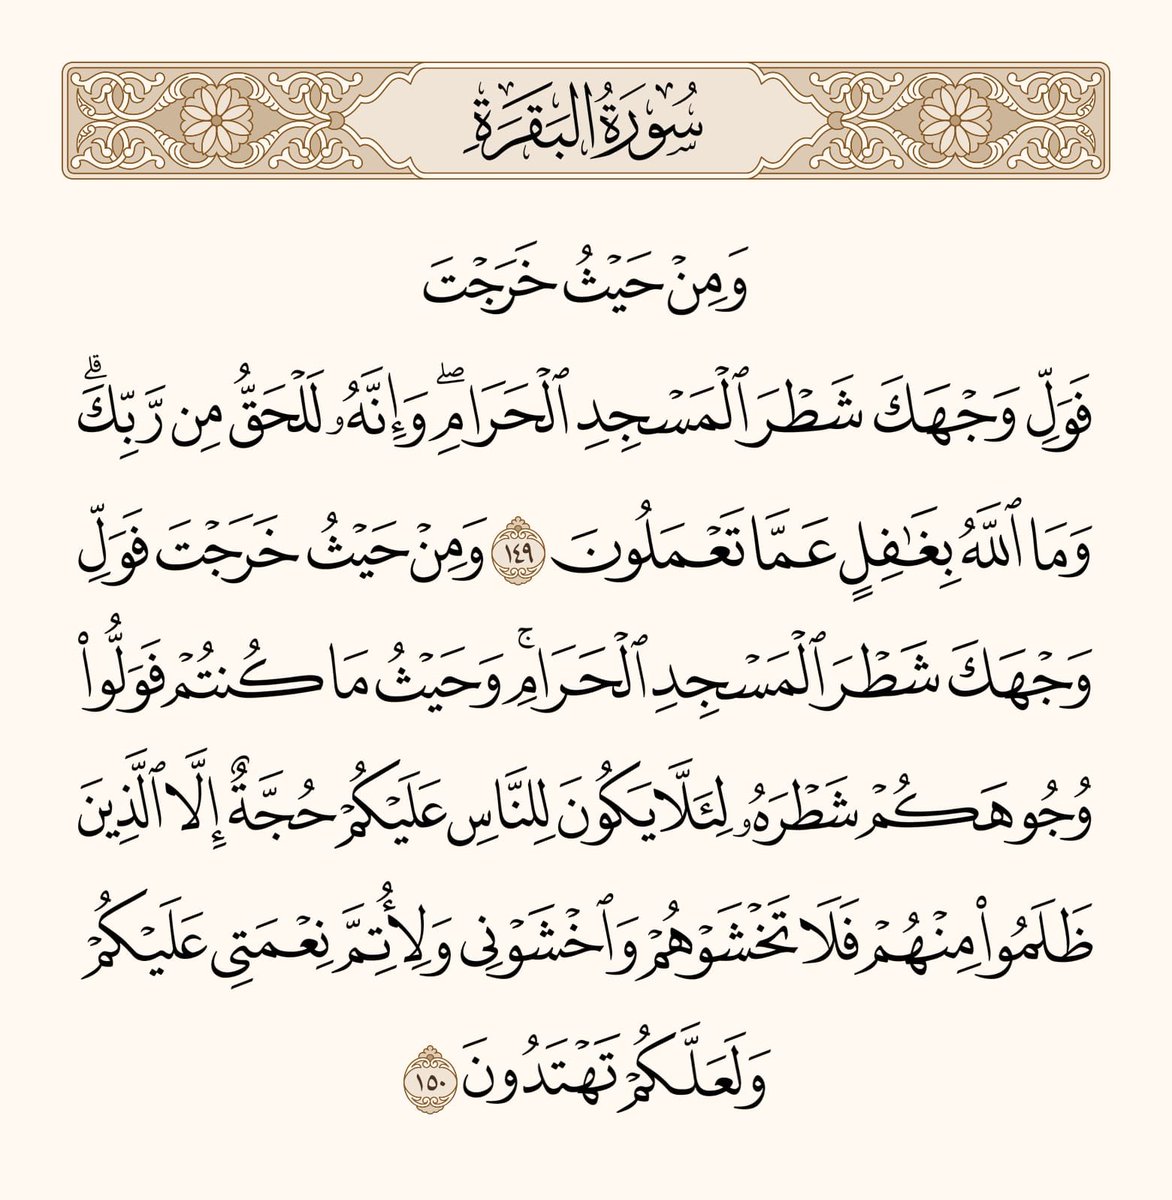 سُورَةُ البَقَرَةِ
وَمِنۡ حَيۡثُ خَرَجۡتَ
فَوَلِّ وَجۡهَكَ شَطۡرَ ٱلۡمَسۡجِدِ ٱلۡحَرَامِۖ وَإِنَّهُۥ لَلۡحَقُّ مِن رَّبِّكَۗ
وَمَا ٱللَّهُ بِغَٰفِلٍ عَمَّا تَعۡمَلُونَ ١٤٩ وَمِنۡ حَيۡثُ خَرَجۡتَ فَوَلِّ
وَجۡهَكَ شَطۡرَ ٱلۡمَسۡجِدِ ٱلۡحَرَامِۚ وَحَيۡثُ مَا كُنتُمۡ فَوَلُّواْ
وُجُوهَكُمۡ شَطۡرَهُۥ لِئَلَّا يَكُونَ لِلنَّاسِ عَلَيۡكُمۡ حُجَّةٌ إِلَّا ٱلَّذِينَ
ظَلَمُواْ مِنۡهُمۡ فَلَا تَخۡشَوۡهُمۡ وَٱخۡشَوۡنِي وَلِأُتِمَّ نِعۡمَتِي عَلَيۡكُمۡ
وَلَعَلَّكُمۡ تَهۡتَدُونَ ١٥٠